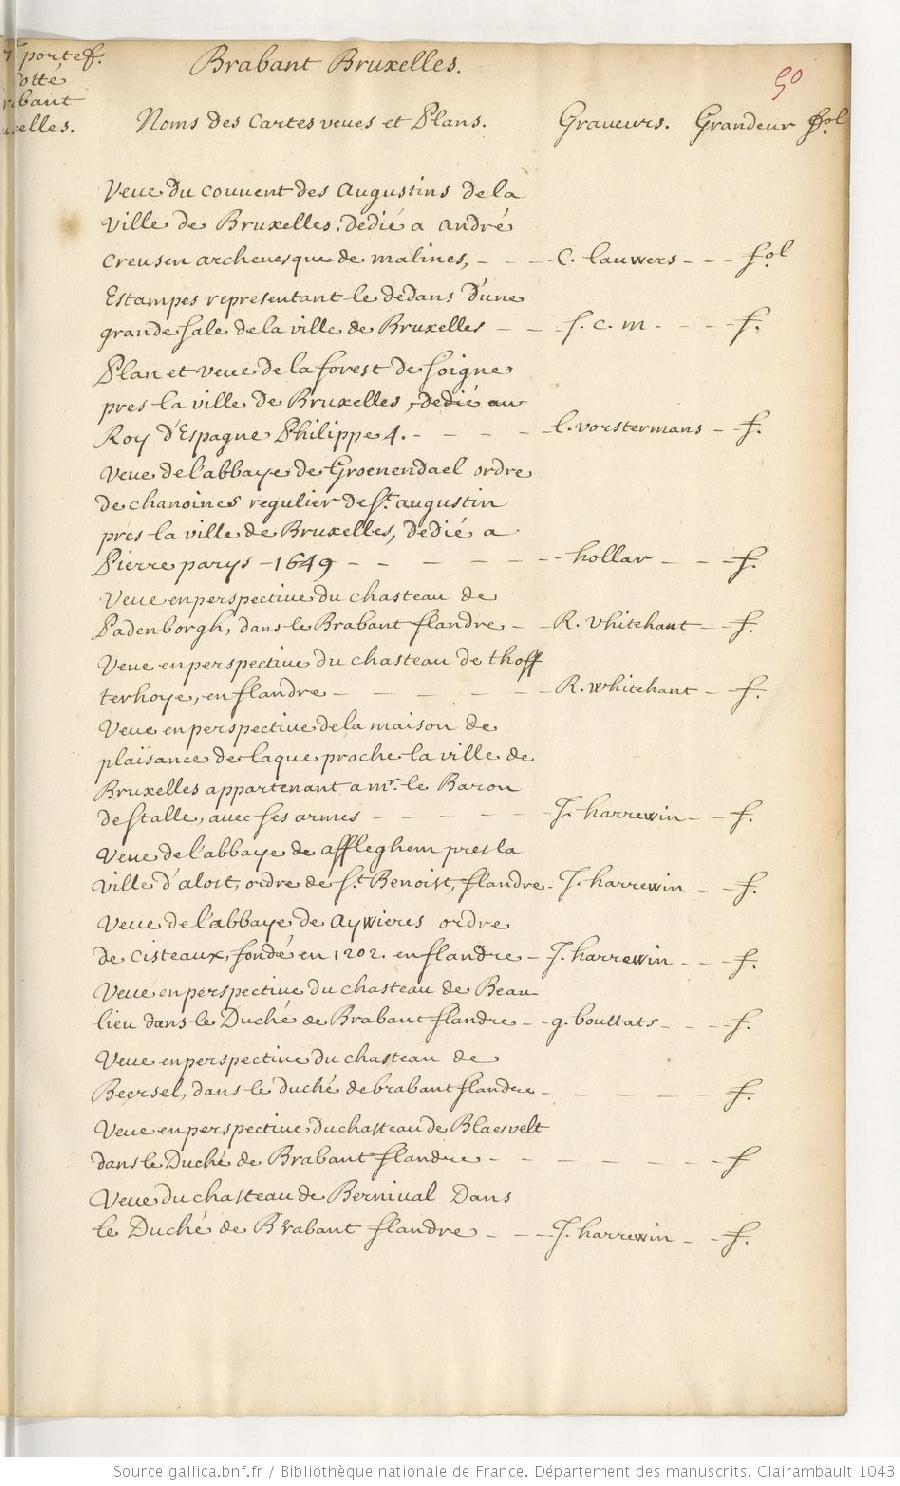 portef.
Brabant Bruxelles.
50
Noms des Cartes veues et Plans. Graveurs. Grandeur fol
Veue du couvent des Augustins de la
ville de Bruxelles, dedié a andré
creusen archevesque de malines, - - - C. lauwers - - - fol
Estampes representant le dedans d'une
grande sale de la ville de Bruxelles - - - f. c. m. - - - f.
Plan et veue de la forest de soigne
pres la ville de Bruxelles, dedié au
Roy d'Espagne Philippe 4. - - - - l. vorstermans - f.
Veue de l'abbaye de Groenendael ordre
de chanoines regulier de St. augustin
prés la ville de Bruxelles, dédié a
Pierre parys - 1649 - - - - - - hollar - - - f.
Veue en perspective du chasteau de
Padenborgh, dans le Brabant flandre - - R. vhitehant - - f.
Veue en perspective du chasteau de thoff
terhoye, en flandre - - - - - - R. whitehant - f.
Veue en perspective de la maison de
plaisance de laque proche la ville de
Bruxelles appartenant a mr. le Baron
de stalle, avec ses armes - - - - - J. harrewin - - f.
Veue de l'abbaye de affleghem pres la
ville d'alost, ordre de St. Benoist, flandre - J. harrewin - - f.
Veue de l'abbaye de Aywieres ordre
de Cisteaux, fondé en 1202. en flandre - J. harrewin - - - f.
Veue en perspective du chasteau de Beau
lieu dans le Duché de Brabant flandre - - g. bouttats - - - - f.
Veue en perspective du chasteau de
Beersel, dans le duché de brabant flandre - - - - - - f.
Veue en perspective du chasteau de Blaesvelt
dans le Duché de Brabant flandre - - - - - - - f
Veue du chasteau de Bernival Dans
le Duché de Brabant flandre - - - - J. harrewin - - f.
Source gallica.bnf.fr / Bibliothèque nationale de France. Département des manuscrits. Clairambault 1043